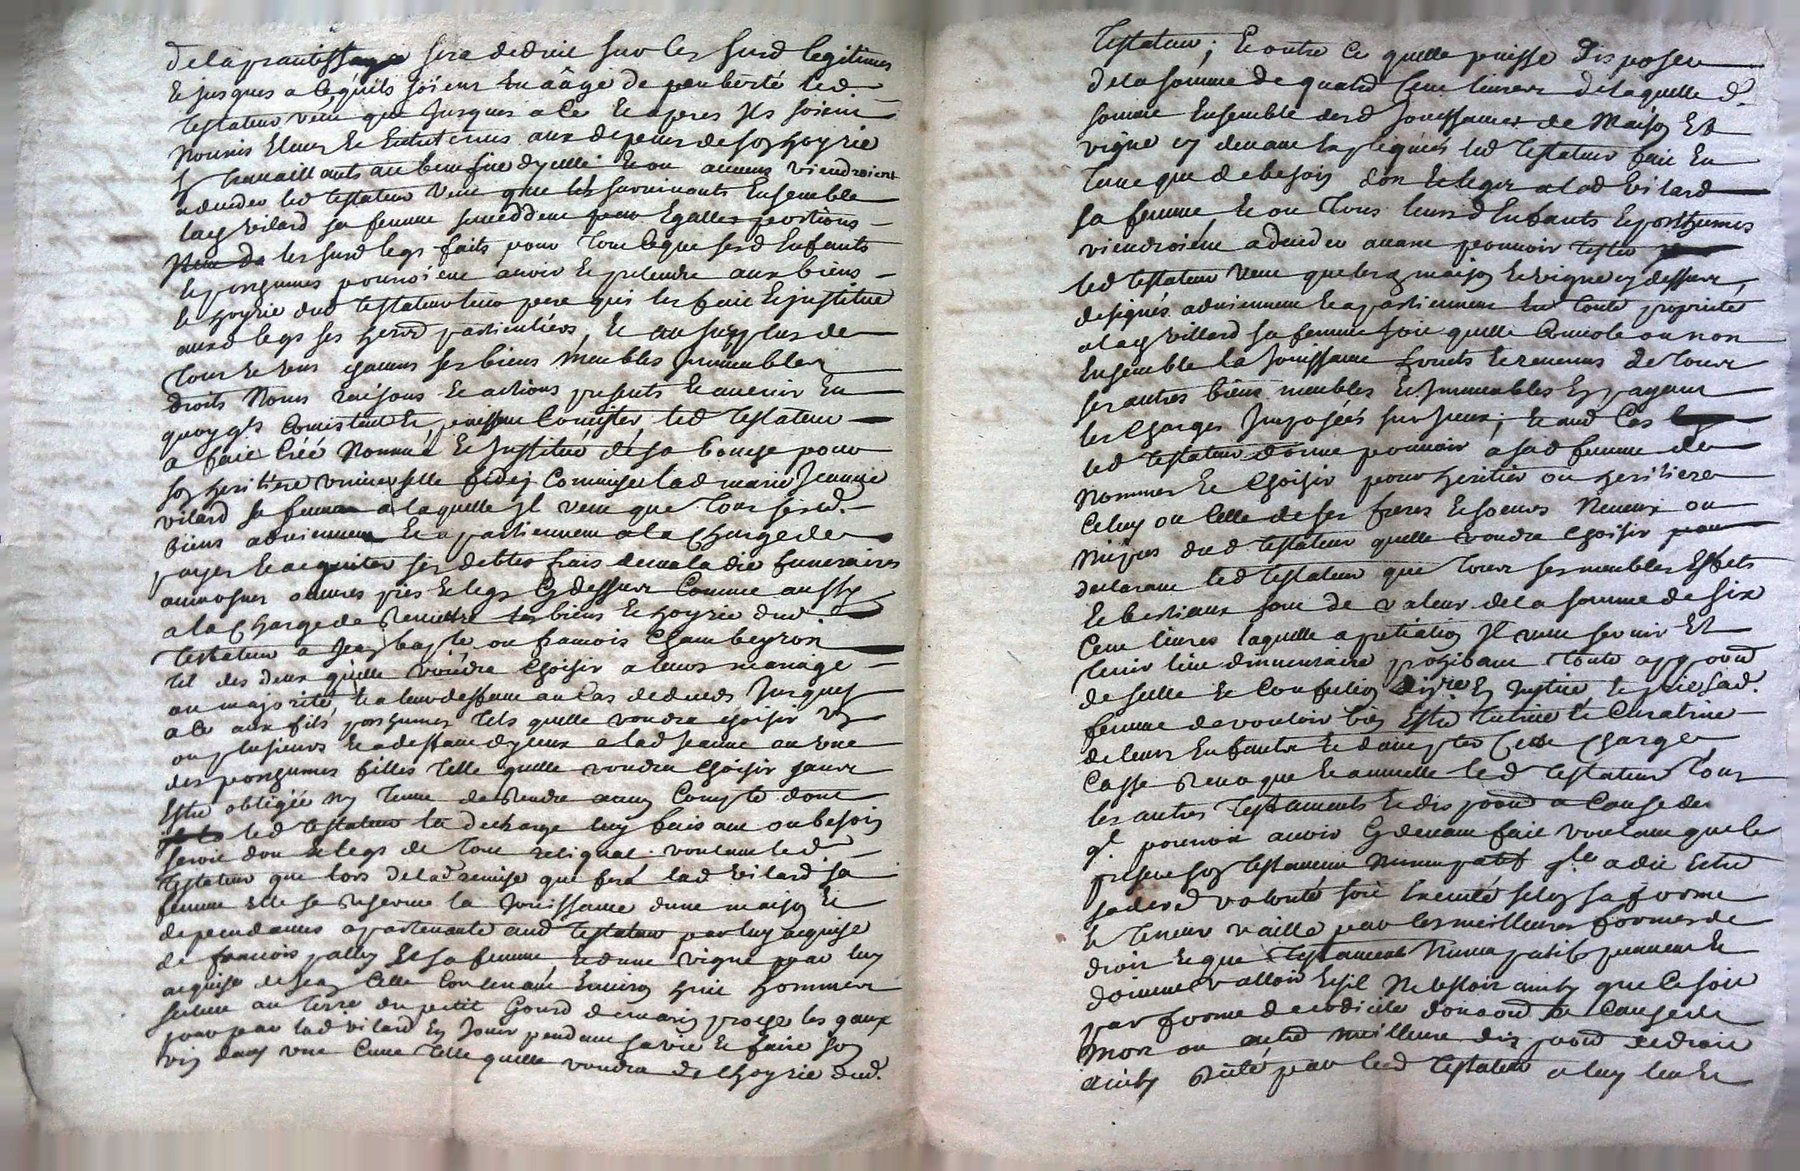 de la jouissance sera dedruit sur les susd legitimes
Et jusques a ce qu'ils soient en aâge de peuberté led.
testateur veut que jusques a ce et apres ils soient
nourris et entretenus aux depens de son hoyrie
y travaillants au benefice dycelle et ou aucuns viendroient
a deceder led testateur veut que les survivants ensemble
lad vilard sa femme succedent pour egalles portions
les susd legs faits pour tout ce que sesd enfants
et posthumes pourroient avoir et pretendre aux biens
et hoyrie dud testateur leur pere qui les fait et institue
auxd legs ses heres particuliers, et au surplus de
tous et uns chacuns ses biens meubles immeubles
droits noms raisons et actions presents et avenir en
quoy qls consistent et puissent consister led testateur
a fait créé nommé et institué de sa bouche pour
son heritiere universelle fidei commise lad marie jeanne
vilard sa femme a laquelle il veut que tous sesd.
biens adviennent et apartiennent a la charge de
payer et acquiter ses debtes frais de maladie funeraires
aumosnes oeuvres pies et legs cy dessus comme aussy
a la charge de remettre ses biens et hoyrie dud
testateur a jean bapte ou francois Chambeyron
tel des deux qu'elle voudra choisir a leurs mariage
ou majorité, et a leur deffaut au cas de deceds jusques
a ce aux fils posthumes tels quelle voudra choisir un
ou plusieurs et a deffaut dyceux a lad jeanne ou une
des posthumes filles telle quelle voudra choisir sans
estre obligée ny tenue de rendre aucun compte dont
led testateur la decharge luy faisant ou besoin
seroit don et legs de tout reliquat voulant led.
testateur que lors de lad remise que fera lad vilard sa
femme elle se reserve la jouissance dune maison et
dependances apartenante aud testateur par luy acquise
de francois palley et sa femme et dune vigne par luy
acquise de jean contenant environ huit hommées
scituée au terroir du petit gourd
pour par lad vilard en jouir pendant sa vie et faire son
vin dans une cuve telle quelle voudra de lhoyrie dud.
testateur; et outre ce quelle puisse disposer
de la somme de quatre cent livres de laquelle d.
somme ensemble desd jouissances de maison et
vigne cy devant led testateur fait en
tant que de besoin don et legs a lad vilard
sa femme, et ou tous leursd enfants et posthumes
viendroient a deceder avant pouvoir tester
led testateur veut que lesd maison et vigne cy dessus
designés adviennent et apartiennent en toute proprieté
a lad villard sa femme soit quelle convole ou non
ensemble la jouissance fruits et revenus de tous
ses autres biens meubles et immeubles en payant
les charges imposées sur iceux; et aud cas
led testateur donne pouvoir a sad femme de
nommer et choisir pour heritier ou heritiere
celuy ou celle de ses freres et soeurs neveux ou
niepces dud testateur quelle voudra choisir
declarant led testateur que tous ses meubles effets
et bestiaux sont de valeur de la somme de six
cent livres laquelle apretiation il veut servir et
tenir lieu dinventaire prohibant toute appoon
de scellé et confection dicelle en justice et prie sad.
femme de vouloir bien estre tutrice et curatrice
de leurs enfants et daccepter cette charge
casse revoque et annulle led testateur tous
les autres testaments et dispoons a cause de
ql pourroit avoir cy devant fait voulant que le
present son testament nuncupatif qle a dit estre
sa dere volonté soit executé selon sa forme
et teneur vaille par les meilleures formes de
droit et que testament nuncupatif peuvent et
doivent valloir et sil ne valloit ainsy que ce soit
par forme de codicile donaon a cause de
mort ou autre meilleure dispoon de droit
ainsy recité par led testateur a luy leu et